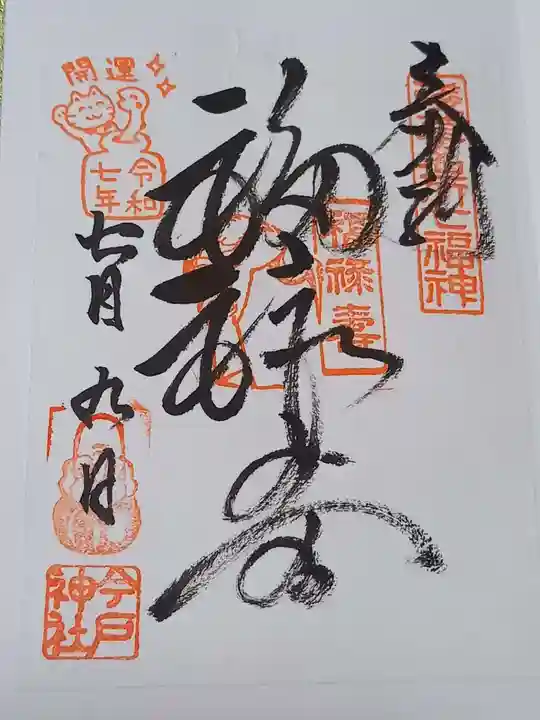 奉拝
浅草名所七福神
福禄寿
福禄壽
開運
令和
七年
七月九日
今戸
神社